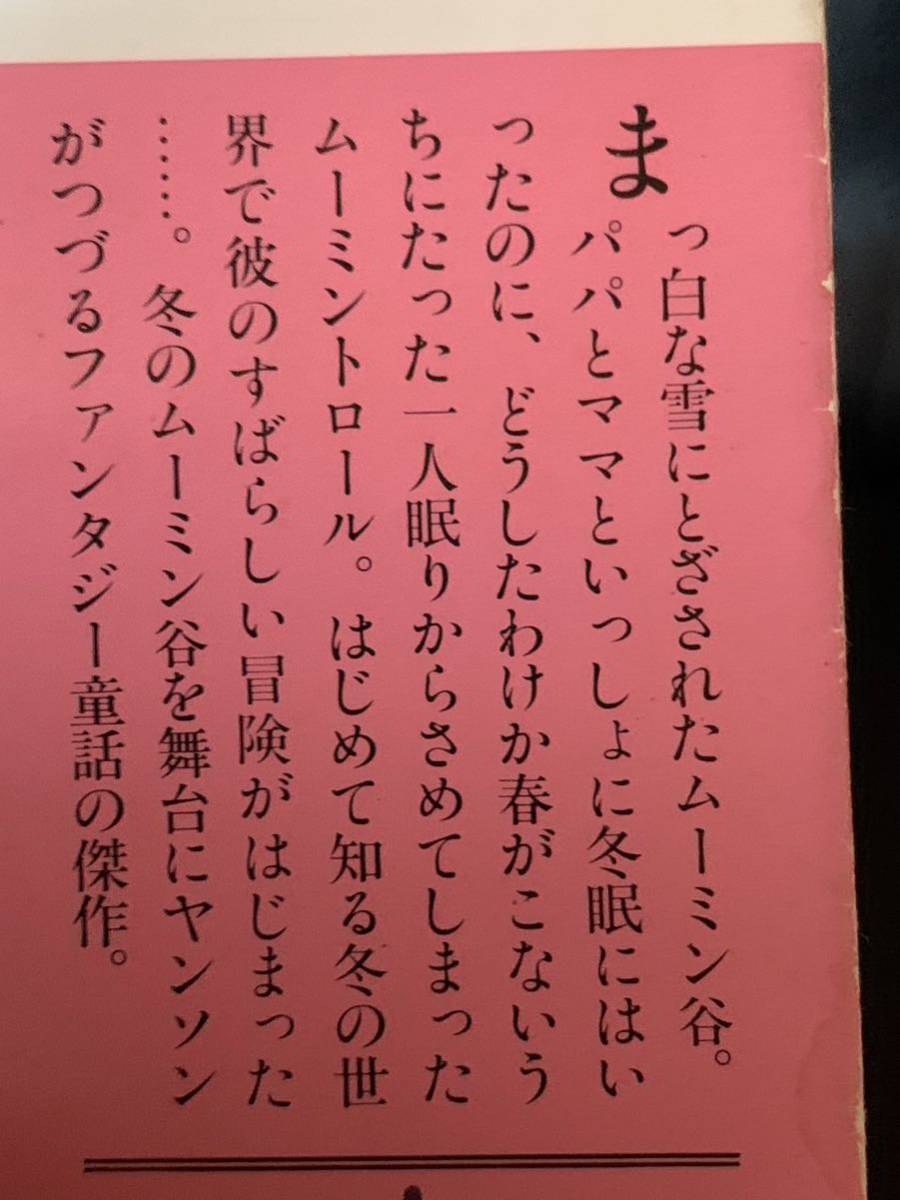 まっ白な雪にとざされたムーミン谷。
パパとママといっしょに冬眠にはい
ったのに、どうしたわけか春がこないう
ちにたった一人眠りからさめてしまった
ムーミントロール。はじめて知る冬の世
界で彼のすばらしい冒険がはじまった
……。冬のムーミン谷を舞台にヤンソン
がつづるファンタジー童話の傑作。